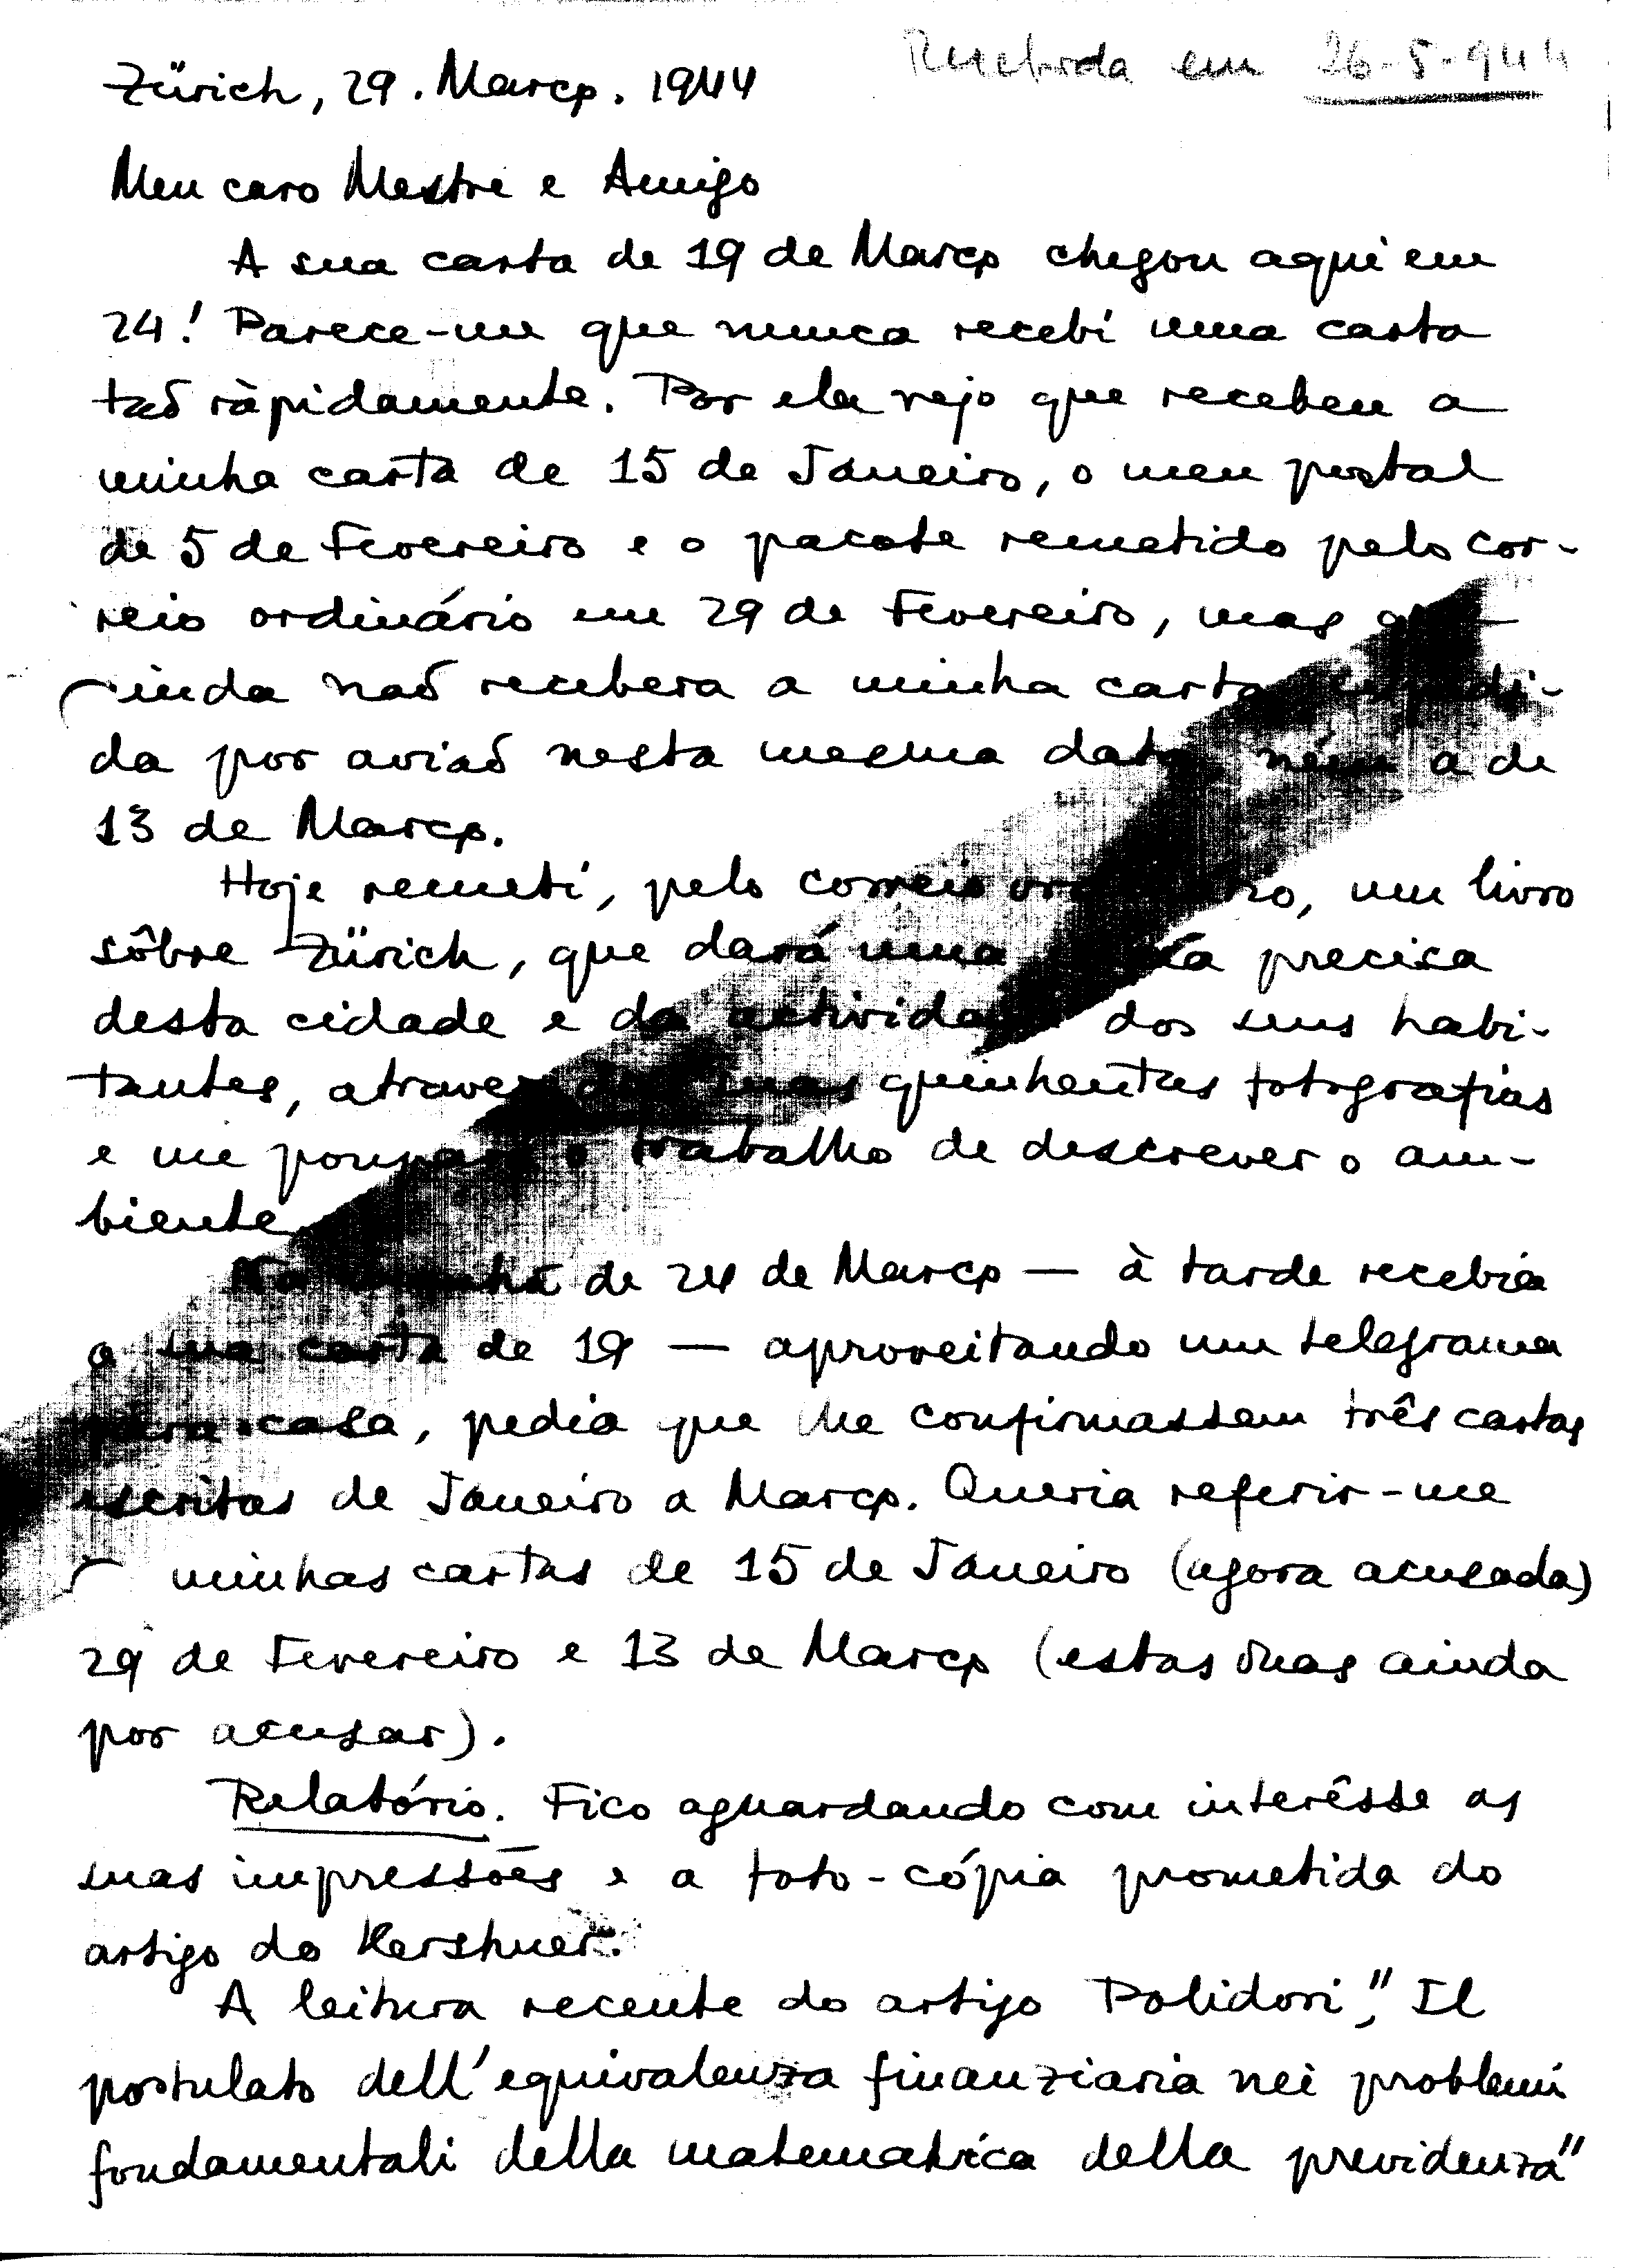 Recebida em 26-5-944
Zürich, 29. Março. 1944
Meu caro Mestre e Amigo
A sua carta de 19 de Março chegou aqui em
24! Parece-me que nunca recebi uma carta
taõ ràpidamente. Por ela vejo que recebeu a
minha carta de 15 de Janeiro, o meu postal
de 5 de Fevereiro e o pacote remetido pelo cor-
reio ordinário em 29 de Fevereiro, mas que
ainda naõ recebera a minha carta expedi-
da por aviaõ nesta mesma data, nem a de
13 de Março.
Hoje remeti, pelo correio ordinário, um livro
sôbre Zürich, que dará uma ideia precisa
desta cidade e da actividade dos seus habi-
tantes, atravez das suas quinhentas fotografias
e me poupará o trabalho de descrever o am-
biente.
Na manhã de 24 de Março — à tarde recebia
a sua carta de 19 — aproveitando um telegrama
para casa, pedia que lhe confirmassem três cartas
escritas de Janeiro a Março. Queria referir-me
minhas cartas de 15 de Janeiro (agora acusada)
29 de Fevereiro e 13 de Março (estas duas ainda
por acusar).
Relatório. Fico aguardando com interêsse as
suas impressões e a foto-cópia prometida do
artigo do Kershner.
A leitura recente do artigo Polidori, "Il
postulato dell'equivalenza finanziaria nei problemi
fondamentali della matematica della previdenza"